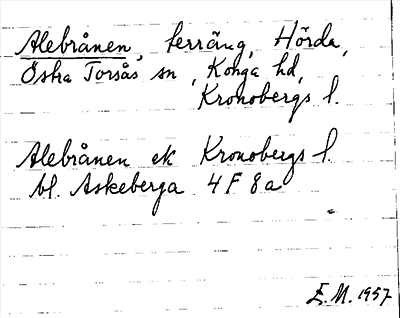 Alebrånen, terräng, Hörda,
Östra Torsås sn, Konga hd,
Kronobergs l.
Alebrånen ek Kronobergs l.
bl. Askeberga 4F 8a
E.M. 1957